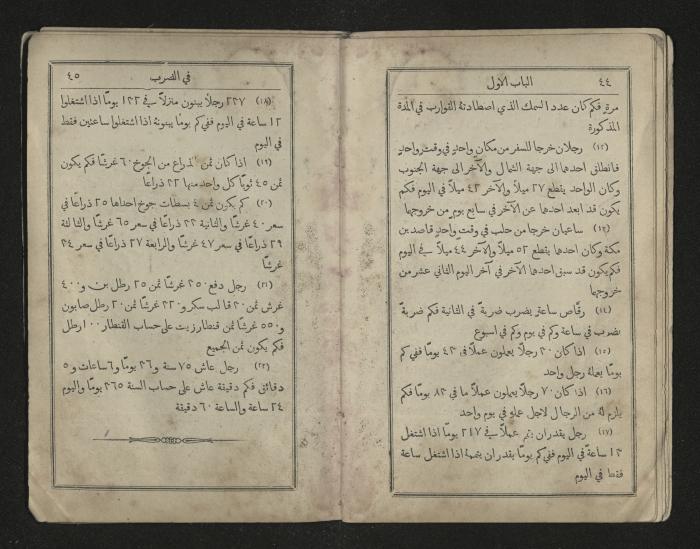 ٤٤
الباب الاول
مرةٍ فكم كان عدد السمك الذي اصطادتهُ القوارب في المدة
المذكورة
(١٢) رجلان خرجا للسفر من مكانٍ واحدٍ في وقتٍ واحدٍ
فانطلق احدهما الى جهة الشمال والآخر الى جهة الجنوب
وكان الواحد يقطع ٢٧ ميلاً والآخر ٤٣ ميلاً في اليوم فكم
يكون قد ابعد احدها عن الآخر في سابع يومٍ من خروجهما
(١٣) ساعيان خرجا من حلب في وقتٍ واحدٍ قاصدين
مكة وكان احدها يقطع ٥٢ ميلاً والآخر ٤٤ ميلاً في اليوم
فكم يكون قد سبق احدها الآخر في آخر اليوم الثاني عشر من
خروجهما
(١٤) رقّاص ساعةٍ يضرب ضربةً في الثانية فكم ضربةً
يضرب في ساعة وكم في يوم وكم في اسبوع
(١٥) اذا كان ٣٠ رجلاً يعملون عملاً في ٤٣ يوماً ففي كم
يوماً يعملهُ رجل واحد
(١٦) اذا كان ٧٠ رجلاً يعملون عملاً ما في ٨٣ يوماً فكم
يلزم لهُ من الرجال لاجل عملهِ في يوم واحد
(١٧) رجل يقدر ان يتم عملاً في ٢١٧ يوماً اذا اشتغل
١٣ ساعةً في اليوم ففي كم يوماً يقدر ان يتمهُ اذا اشتغل ساعة
فقط في اليوم
في الضرب
٤٥
(١٨) ٢٢٧ رجلاً يبنون منزلاً في ١٢٢ يوماً اذا اشتغلوا
١٢ ساعة في اليوم ففي كم يوماً يبنونهُ اذا اشتغلوا ساعتين فقط
في اليوم
(١٩) اذا كان ثمن الذراع من الجوخ ٦٠ غرشاً فكم يكون
ثمن ٤٥ ثوباً كل واحد منها ٢٢ ذراعاً
(٢٠) كم يكون ثمن ٤ بسطات جوخ احداها ٢٥ ذراعاً في
سعر ٤٠ غرشاً والثانية ٢٢ ذراعاً في سعر ٦٥ غرشاً والثالثة
٢٩ ذراعاً في سعر ٤٧ غرشاً والرابعة ٢٧ ذراعاً في سعر ٣٤
غرشاً
(٢١) رجل دفع ٢٥٠ غرشاً ثمن ٢٥ رطل بن و٤٠٠
غرش ثمن ٢٠ قالب سكر و٢٢٠ غرشاً ثمن ٢٠ رطل صابون
و٥٥٠ غرشاً ثمن قنطار زيت على حساب القنطار ١٠٠ رطل
فكم يكون ثمن الجميع
(٢٢) رجل عاش ٧٥ سنة و٢٦ يوماً و٦ ساعات و٥
دقائق فكم دقيقة عاش على حساب السنة ٣٦٥ يوماً واليوم
٢٤ ساعة والساعة ٦٠ دقيقة